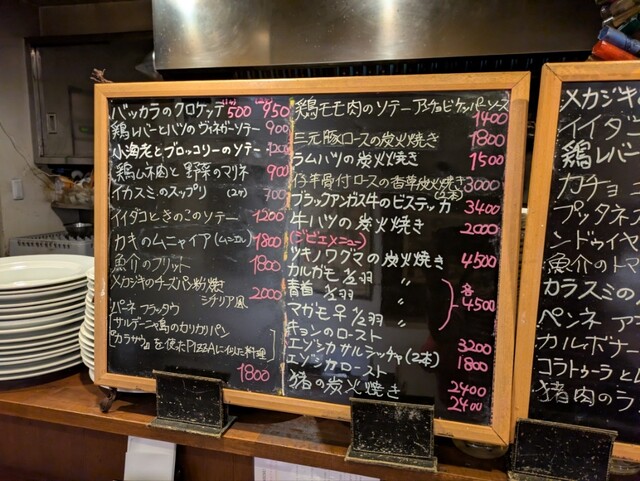 バッカラのクロケッテ 500 950
鶏レバーとハツのヴィネガーソテー 900
小海老とブロッコリーのソテー 1200
鶏ムネ肉と野菜のマリネ 900
イカスミのスップリ (2ケ) 700
イイダコときのこのソテー 1200
カキのムニャイア(ムニエル) 1800
魚介のフリット 1800
メカジキのチーズパン粉焼 シチリア風 2000
パーネ フラッタウ
サルデーニャ島のカリカリパン
「カラサウ」を使ったPIZZAに似た料理
1800
鶏モモ肉のソテー アンチョビケッパーソース
1400
三元豚ロースの炭火焼き 1800
ラムハツの炭火焼き 1500
仔羊骨付ロースの香草炭火焼き (2本) 3000
ブラックアンガス牛のビステッカ 3400
牛ハツの炭火焼き 2000
(ジビエメニュー)
ツキノワグマの炭火焼き 4500
カルガモ 1/2羽 〃
青首 1/2羽 〃 各
マガモ♀ 1/2羽 〃 4500
キョンのロースト 3200
エゾシカサルシッチャ(2本) 1800
エゾシカロースト 2400
猪の炭火焼き 2400
メカジキの
イイダコ
鶏レバー
カチョ
プッタネ
ンドゥイヤ
魚介のトマ
カラスミの
ペンネ アラ
カルボナー
コラトゥーラとム
猪肉のラ